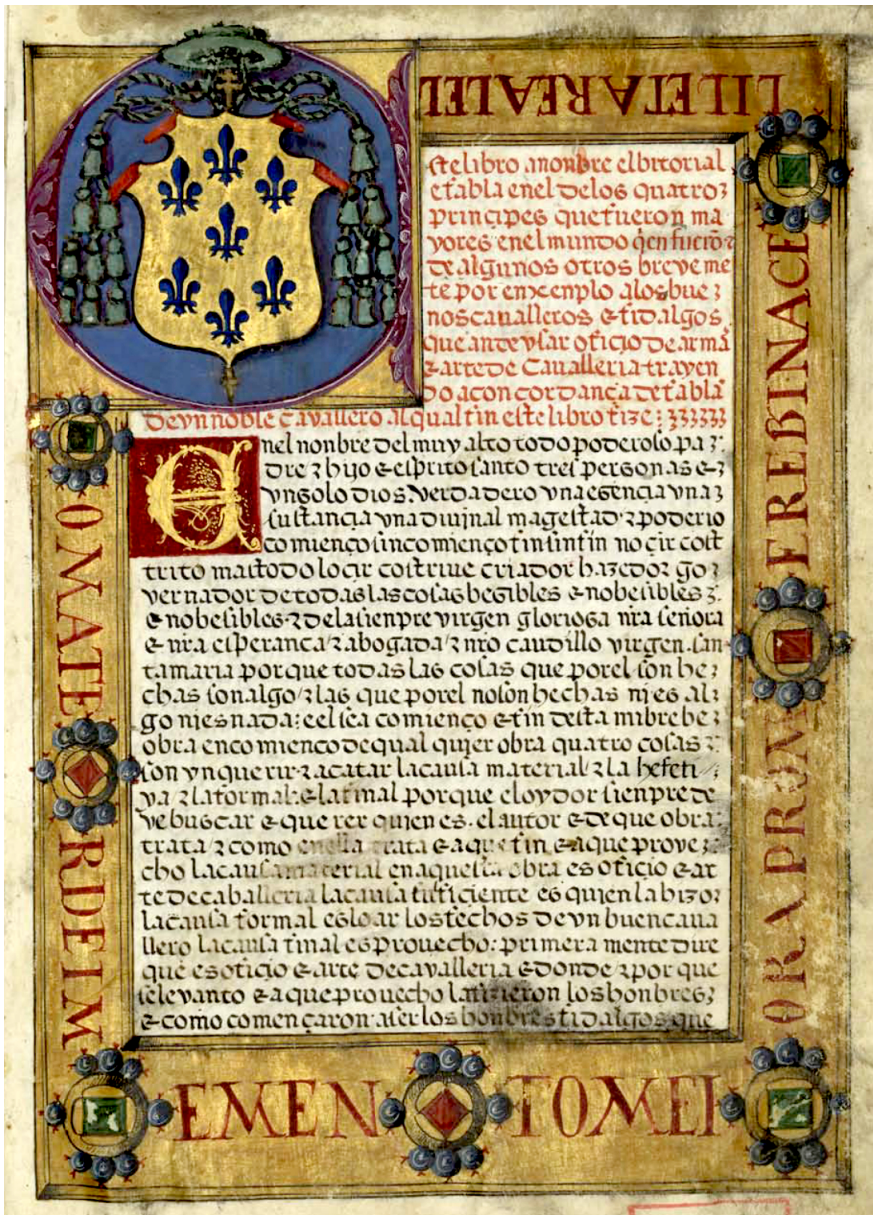 LILETAREALEL
ste libro a nonbre el bitorial
e fabla en el de los quatro
principes que fueron ma
yores en el mundo q̄en fuerō
de algunos otros breveme
te por enxenplo a los bue
nos cavalleros e fidalgos
que an de vsar oficio de armā
e arte de cavalleria trayen
do a concordança de fabla
de vn noble cavallero al qual fin este libro fize
E nel nonbre del muy alto todo poderoso pa
dre e hijo e esprito santo tres personas e
vn solo dios verdadero vna esencia vna
sustancia vna diuinal magestad e poderio
comienço sin comienço fin sin fin no çir cost
trito mas todo lo çir costrive criador hazedor go
vernador de todas las cosas besibles e nobesibles
e nobesibles e de la sienpre virgen gloriosa nr̄a señora
e nr̄a esperanca e abogada e nr̄o caudillo virgen san
ta maria por que todas las cosas que por el son he
chas son algo e las que por el no son hechas ni es al
go ni es nada e el sea comienço e fin desta mi brebe
obra en comienco de qual quier obra quatro cosas
son ynquerir e acatar la causa material e la hefeti
va e la formal e la final por que el oydor sienpre de
ve buscar e querer quien es el autor e de que obra
trata e como en ella trata e a que fin e a que prove
cho la causa material en aquesta obra es oficio e ar
te de caballeria la causa suficiente es quien la hizo
la causa formal es loar los fechos de vn buen caua
llero la causa final es prouecho primera mente dire
que es oficio e arte de cavalleria e donde e por que
se levanto e a que provecho la fizieron los honbres
e como començaron a ser los honbres fidalgos que
EREBINACE
ORA PROM
EMEN TOMEI
OMATE
RDEIM